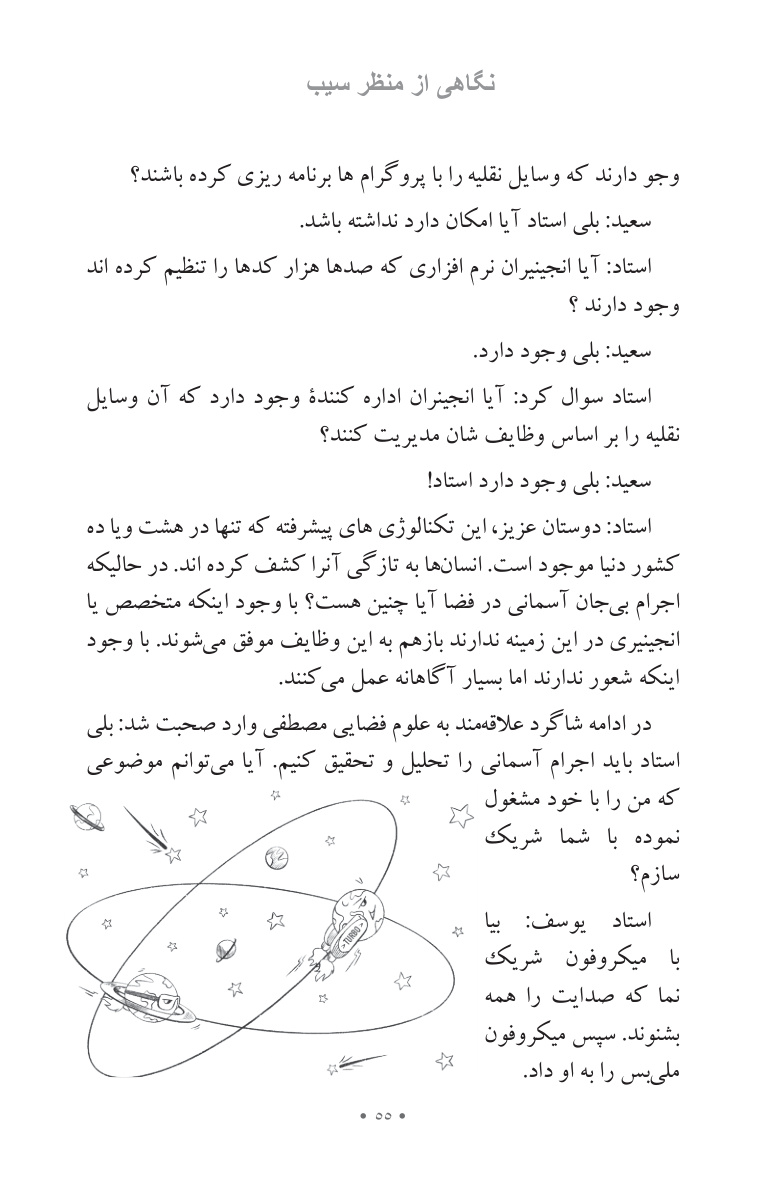 نگاهی از منظر سیب
وجو دارند که وسایل نقلیه را با پروگرام ها برنامه ریزی کرده باشند؟
سعید: بلی استاد آیا امکان دارد نداشته باشد.
استاد: آیا انجینیران نرم افزاری که صدها هزار کدها را تنظیم کرده اند
وجود دارند ؟
سعید: بلی وجود دارد.
استاد سوال کرد: آیا انجینران اداره کنندهٔ وجود دارد که آن وسایل
نقلیه را بر اساس وظایف شان مدیریت کنند؟
سعید: بلی وجود دارد استاد!
استاد: دوستان عزیز، این تکنالوژی های پیشرفته که تنها در هشت ویا ده
کشور دنیا موجود است. انسان‌ها به تازگی آنرا کشف کرده اند. در حالیکه
اجرام بی‌جان آسمانی در فضا آیا چنین هست؟ با وجود اینکه متخصص یا
انجینیری در این زمینه ندارند بازهم به این وظایف موفق می‌شوند. با وجود
اینکه شعور ندارند اما بسیار آگاهانه عمل می‌کنند.
در ادامه شاگرد علاقه‌مند به علوم فضایی مصطفی وارد صحبت شد: بلی
استاد باید اجرام آسمانی را تحلیل و تحقیق کنیم. آیا می‌توانم موضوعی
که من را با خود مشغول
نموده با شما شریک
سازم؟
استاد یوسف: بیا
با میکروفون شریک
نما که صدایت را همه
بشنوند. سپس میکروفون
ملی‌بس را به او داد.
TURBO
• ٥٥ •